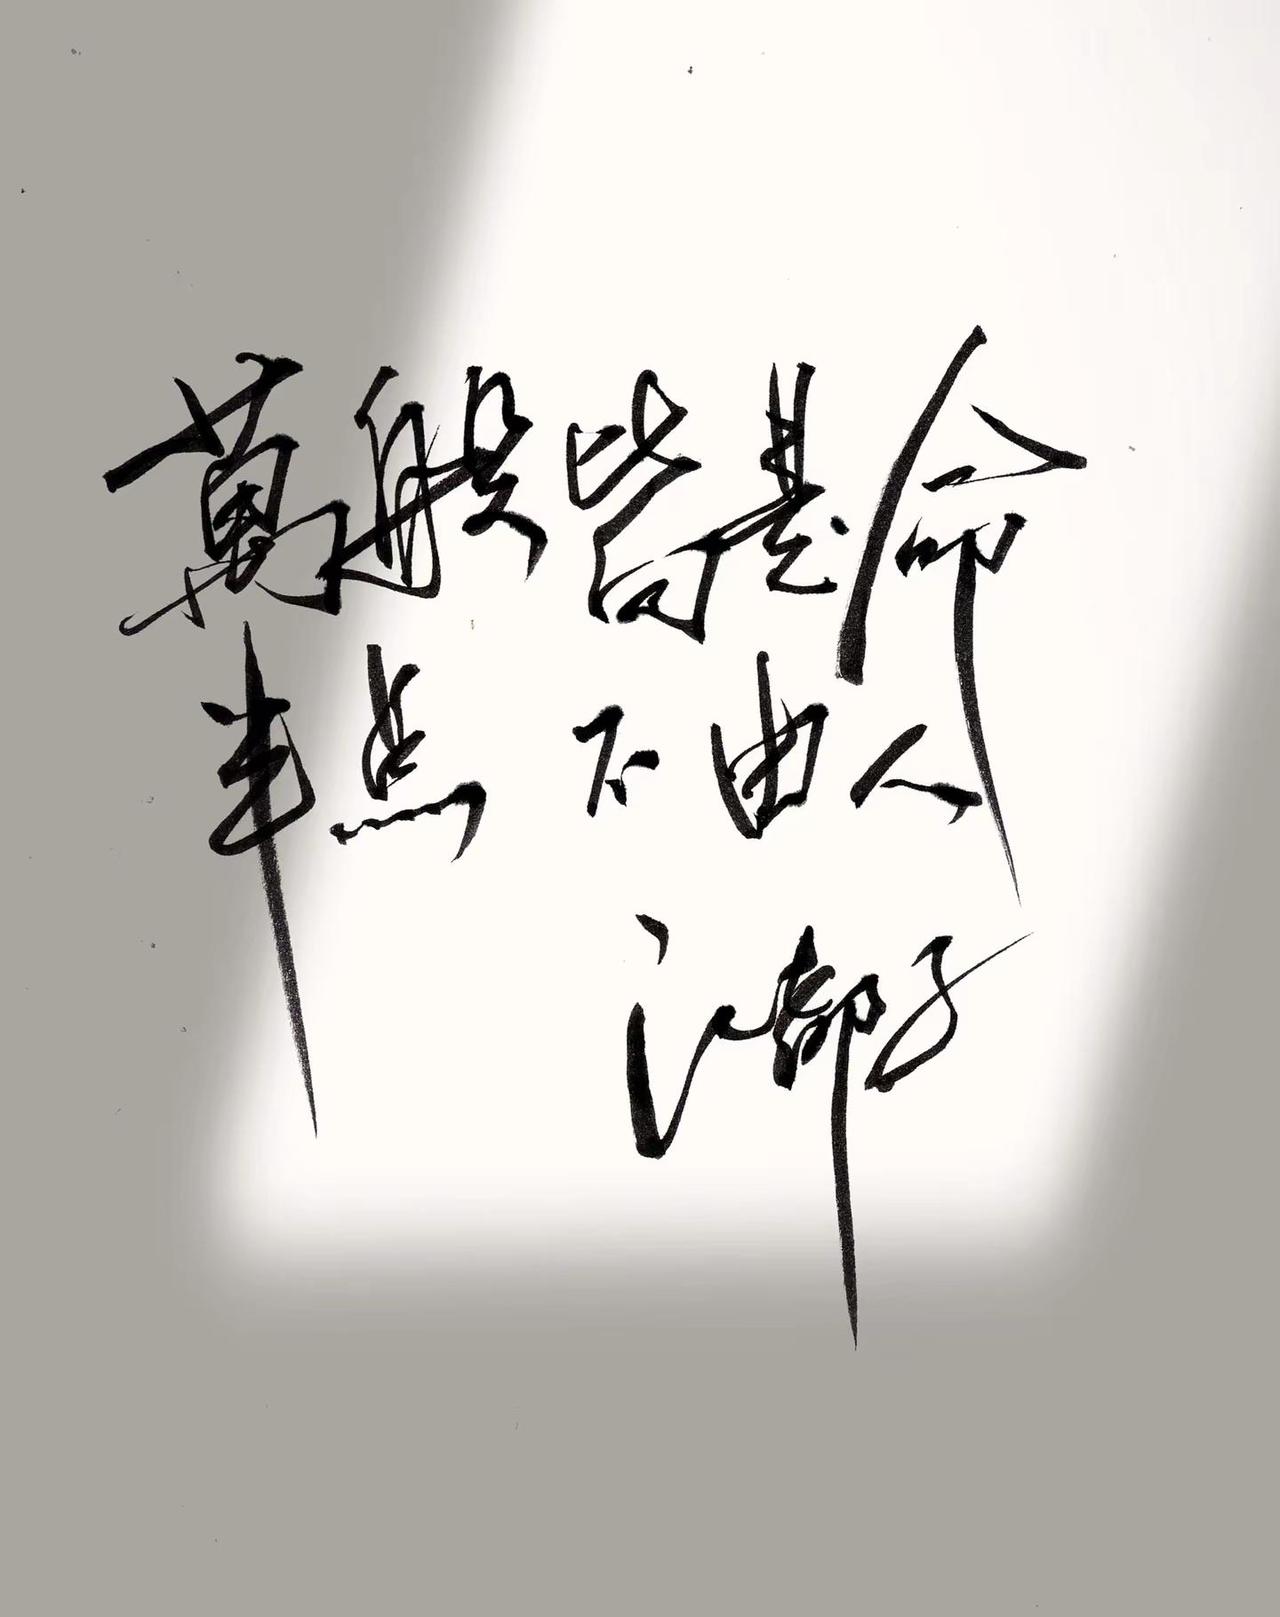 萬般皆是命
半点不由人
江都子